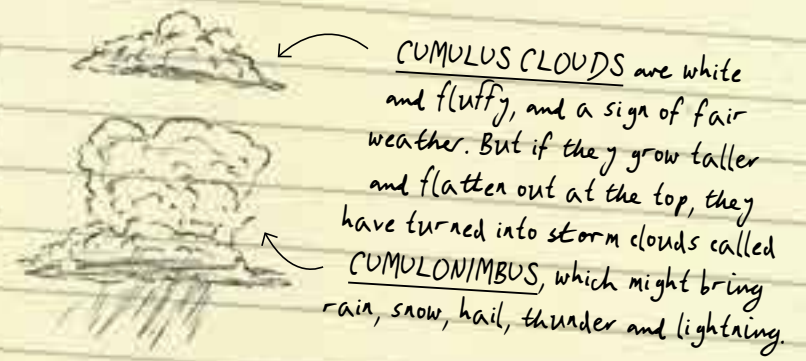 CUMULUS CLOUDS are white
and fluffy, and a sign of fair
weather. But if they grow taller
and flatten out at the top, they
have turned into storm clouds called
CUMULONIMBUS, which might bring
rain, snow, hail, thunder and lightning.